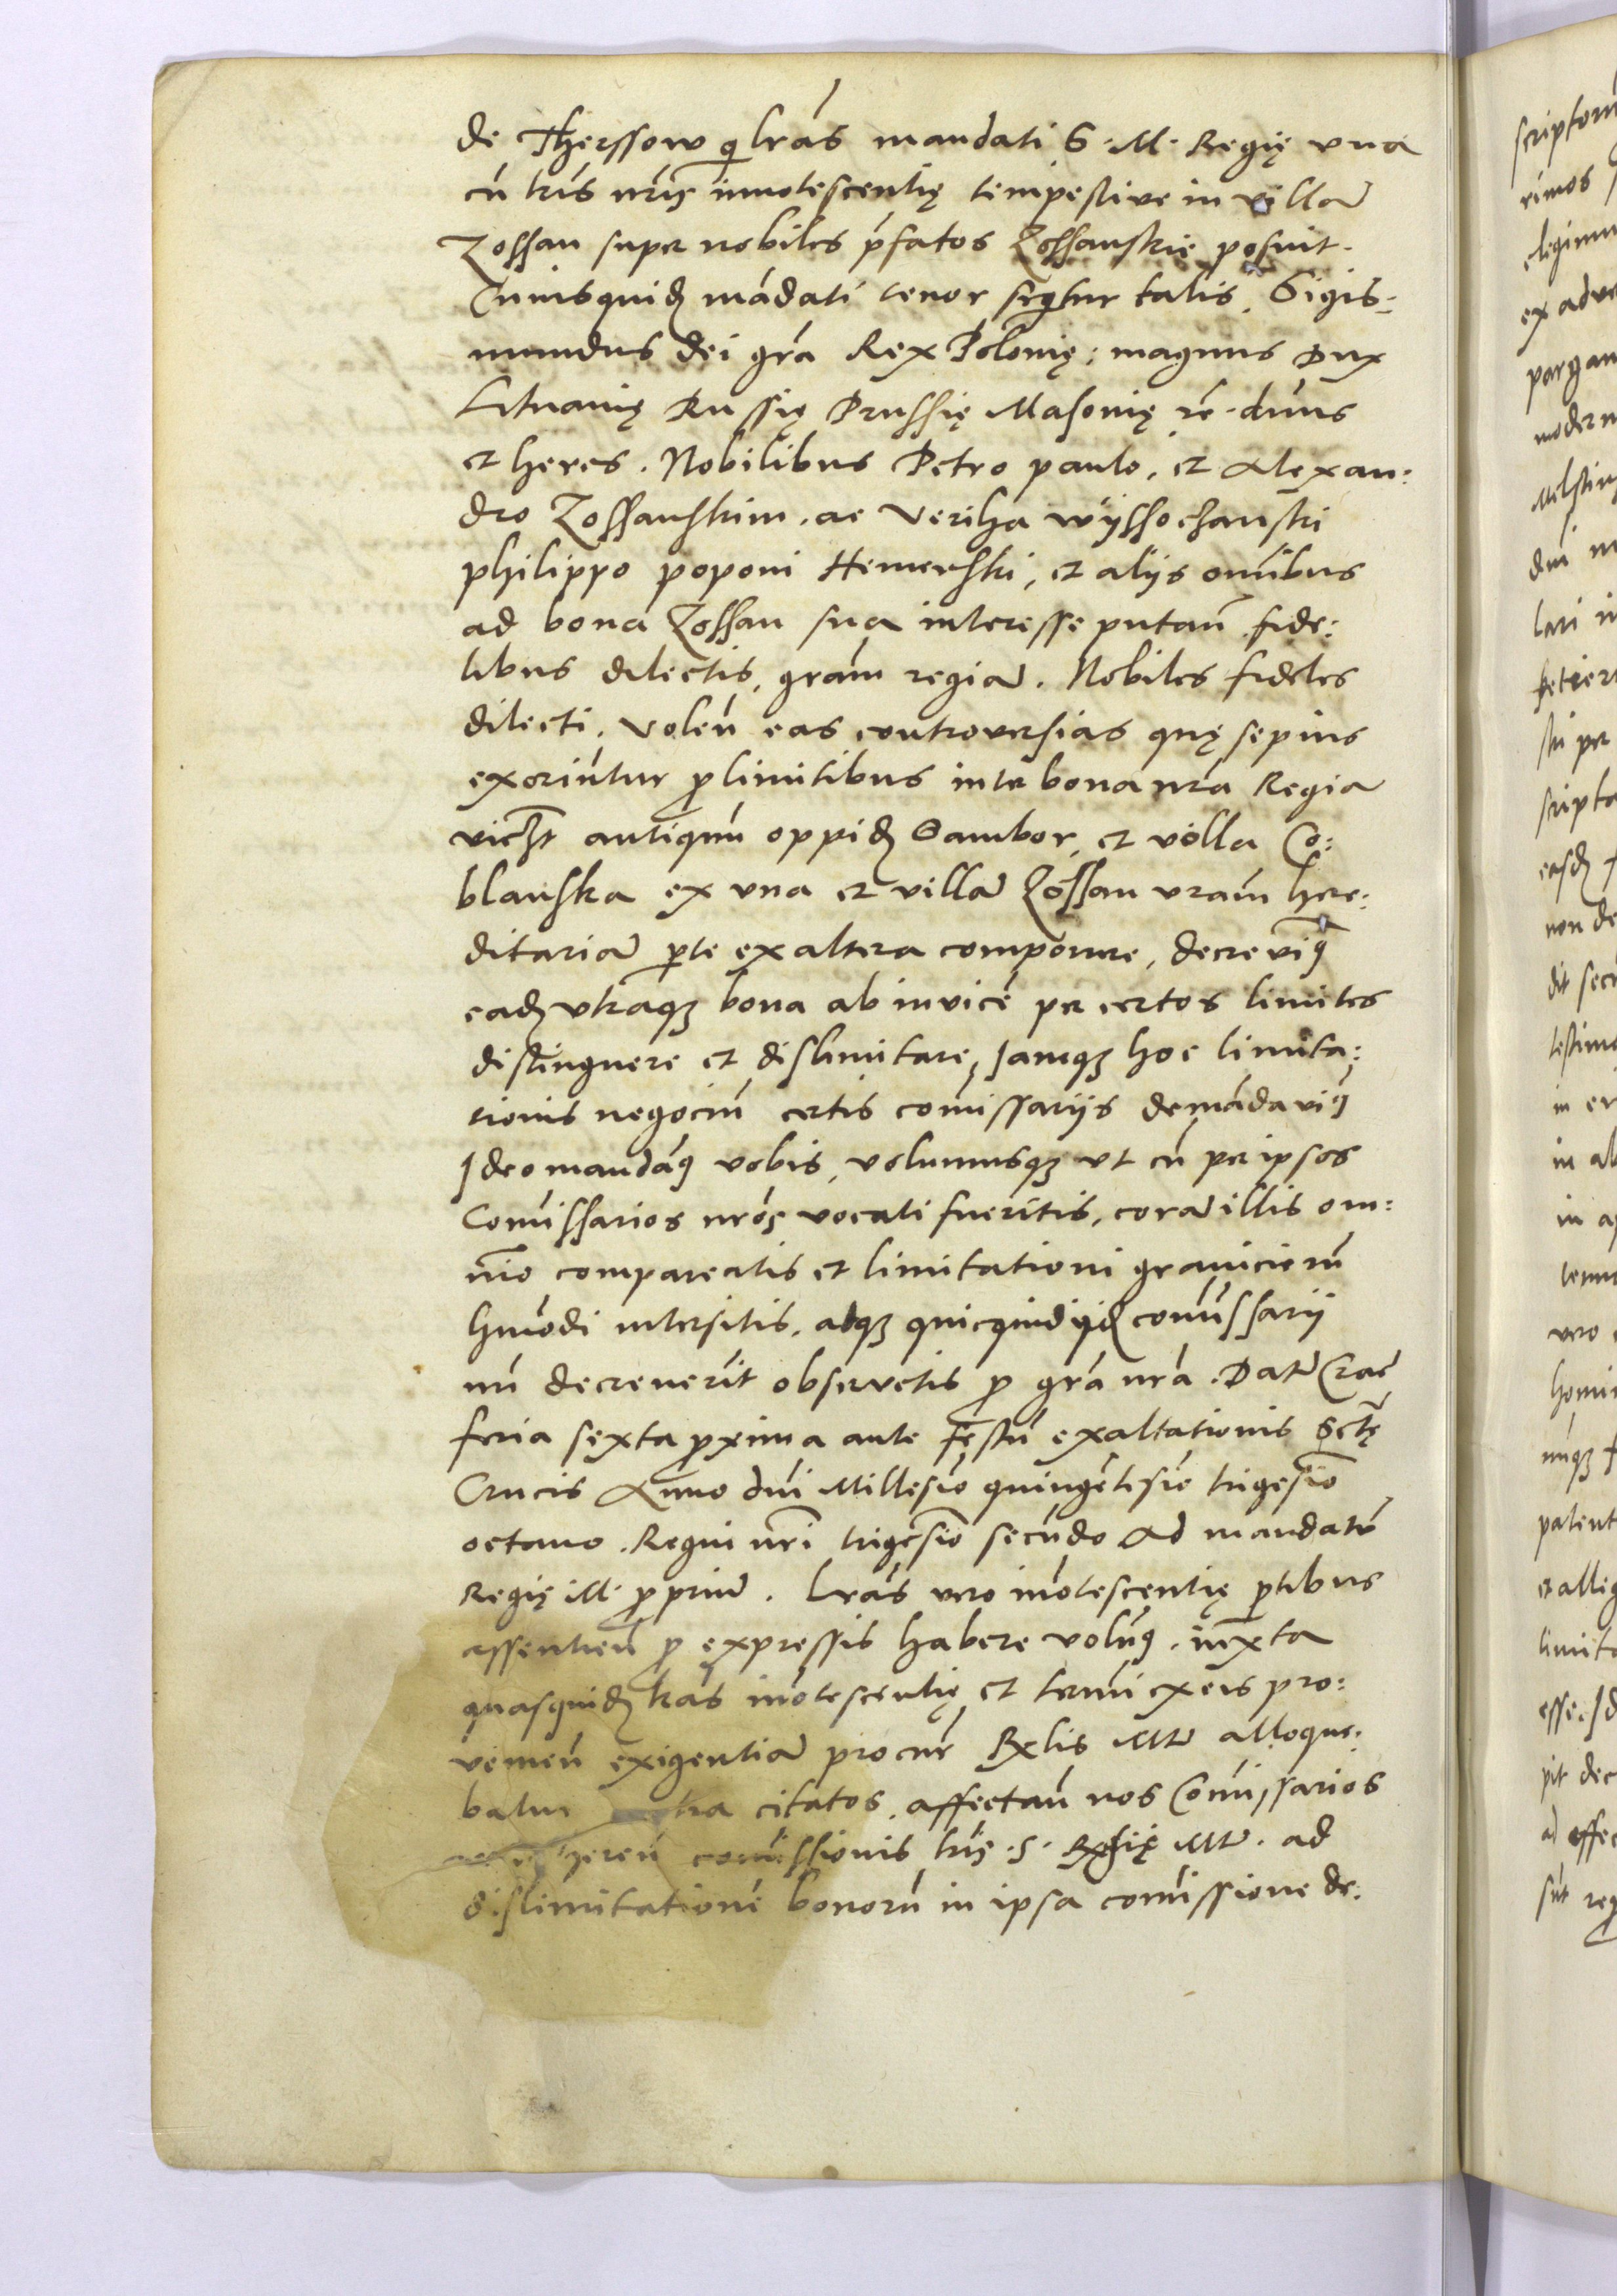 de Therssow q lrás mandati S. M. Regię vna
cū lrís nrís innotescentię tempestive in villā
Zossan super nobiles pfatos Zossanskie posuit.
Cuiusquidꝫ mādati tenor seqtur talis, Sigis-
mundus dei gra Rex Polonię; magnus Dux
Lituanię Russię Prussię Masonię rē. dnus
et heres. Nobilibus Petro paulo, et Alexan:
dro Zossanskim. ac Veriha wÿssochanski
philippo poponi Hemerski, et alijs omībus
ad bona Zossan sua interesse putań fide:
libus dilectis, gram regiā. Nobiles fideles
dilecti. Voleń eas controversias quę sepius
exoriūtur ꝓ limitibus inter bona nra Regia
vicꝫt antiquū oppidꝫ Sambor, et villa Co:
blanska ex vna et villā Zossan vram here:
ditariā pte ex altera componere, decrevimꝯ
eadꝫ vtraqꝫ bona ab invicē per certos limites
distinguere et dislimitare, Iamqꝫ hoc limita:
tionis negociū certis comissarijs demādavimꝯ
Ideo mandamꝯ vobis, volumusqꝫ vt cū per ipsos
Comissarios nros vocati fueritis, corā illis om:
nio compareatis et limitationi granicierū
hmodi intersitis, atqꝫ quicquid ijdꝫ comissarij
nri decreverit observetis ꝓ gra nra. Datū Crac
feria sexta ꝓxima ante festū exaltationis Sctę
Crucis Anno dni Millesio quingētesio trigesio
octavo. Regni nri trigesio secūdo Ad mandatū
Regię M. ꝓpriū. Lras vero inotescentię ptibus
assentień ꝓ expressis habere volumꝯ. iuxta
quasquidꝫ lras inotescentię et termi ex eis pro:
venień exigentiā procur Rglis Mtis alloque:
batur citatos, affectań nos Comissarios
comissionis lris. S. Regię Mtis. ad
dislimitationē bonorū in ipsa comissione de: